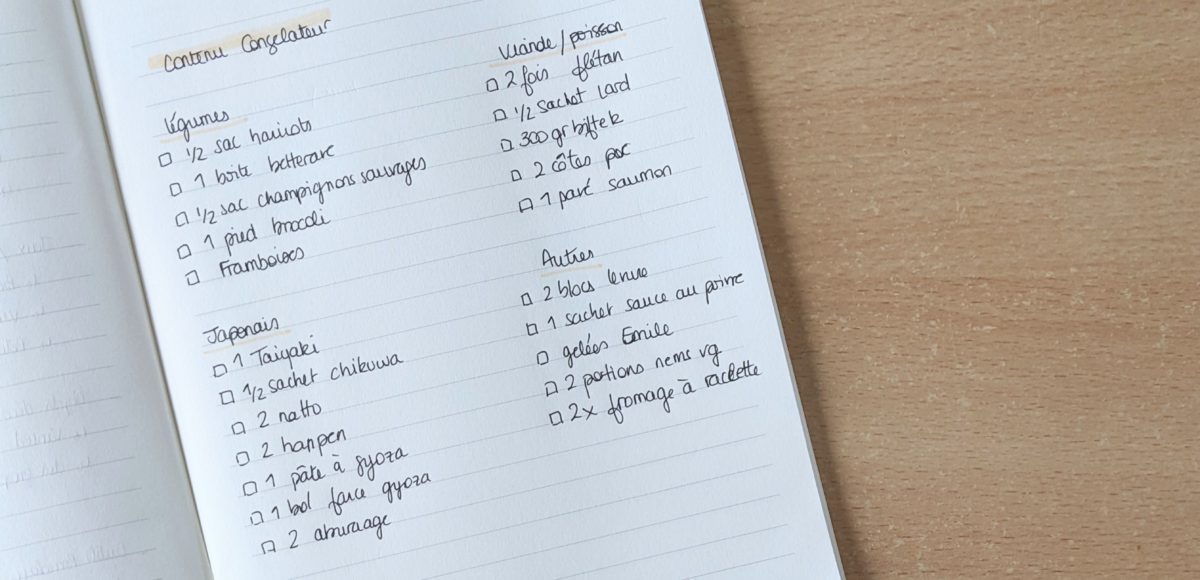 Contenu Congelateur
Légumes
1/2 sac haricots
1 boite betterave
1/2 sac champignons sauvages
1 pied brocoli
Framboises
Japonais
1 Taiyaki
1/2 sachet chikuwa
2 natto
2 hanpen
1 pâte à gyoza
1 bol farce gyoza
2 aburaage
Viande/poisson
2 fois flétan
1/2 sachet lard
300 gr biftek
2 côtes porc
1 pavé saumon
Autres
2 blocs levure
1 sachet sauce au poivre
gelées Emile
2 portions nems vg
2x fromage à raclette